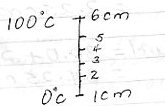 100°C 6cm
5
4
3
2
0°c 1cm